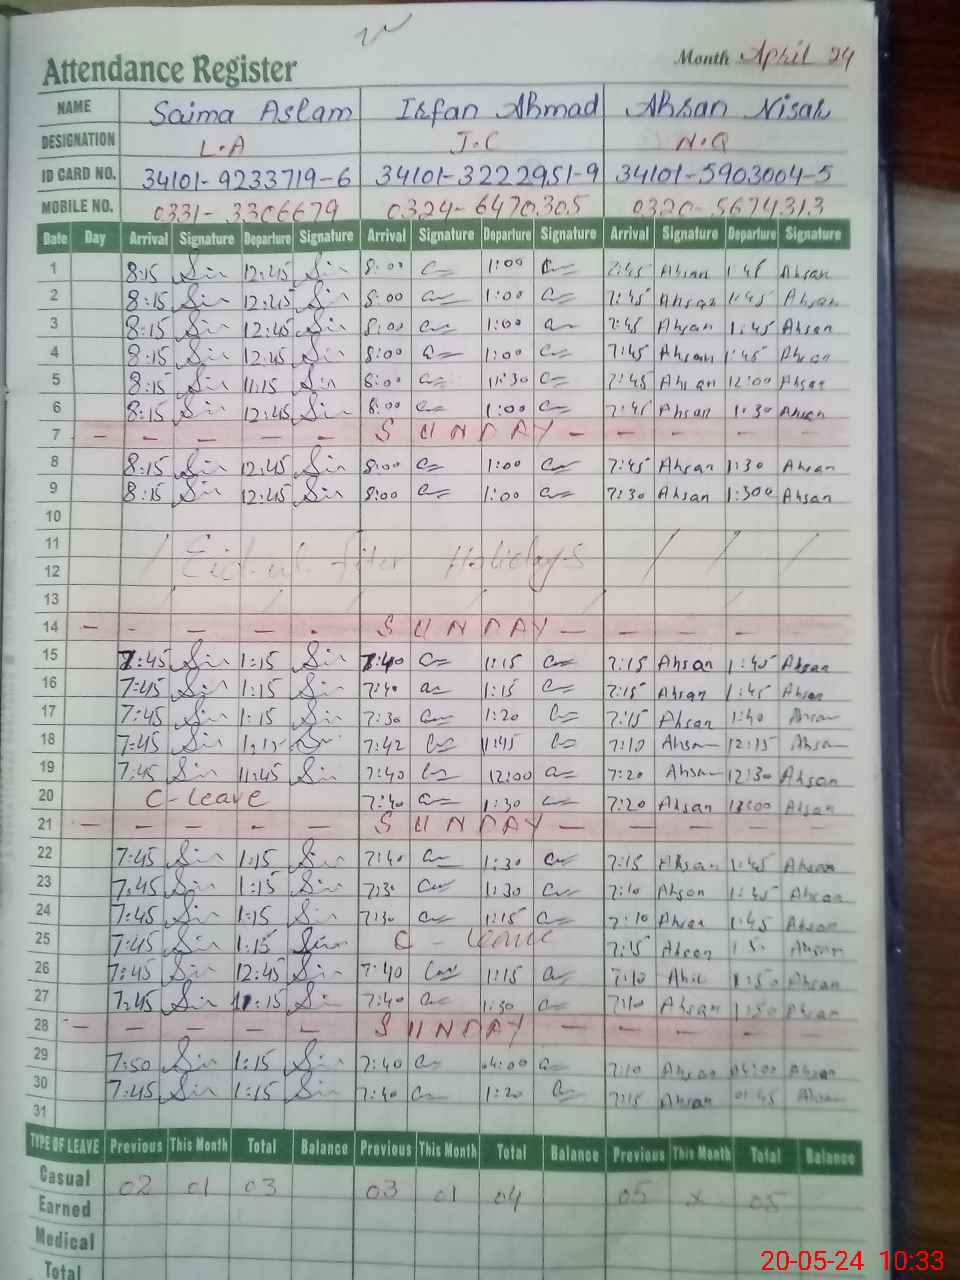 Month April 24
Attendance Register
NAME Saima Aslam Irfan Ahmad Ahsan Nisar
DESIGNATION L.A J.C N.Q
ID CARD NO. 34101-9233719-6 34101-3222951-9 34101-5903004-5
MOBILE NO. 0331-3306679 0324-6470305 0320-5674313
Date Day Arrival Signature Departure Signature Arrival Signature Departure Signature Arrival Signature Departure Signature
1 8:15 12:45 8:00 1:00 7:45 Ahsan 1:45 Ahsan
2 8:15 12:45 8:00 1:00 7:45 Ahsan 1:45 Ahsan
3 8:15 12:45 8:00 1:00 7:45 Ahsan 1:45 Ahsan
4 8:15 12:45 8:00 1:00 7:45 Ahsan 1:45 Ahsan
5 8:15 11:15 8:00 11:30 7:45 Ahsan 12:00 Ahsan
6 8:15 12:45 8:00 1:00 7:45 Ahsan 1:30 Ahsan
7 - - - - - SUNDAY - - - - -
8 8:15 12:45 8:00 1:00 7:45 Ahsan 1:30 Ahsan
9 8:15 12:45 8:00 1:00 7:30 Ahsan 1:30 Ahsan
10
11
12 Eid-ul-fiter Holidays
13
14 - - - - - SUNDAY - - - - -
15 7:45 1:15 7:40 1:15 7:15 Ahsan 1:45 Ahsan
16 7:45 1:15 7:40 1:15 7:15 Ahsan 1:45 Ahsan
17 7:45 1:15 7:30 1:20 7:15 Ahsan 1:40 Ahsan
18 7:45 7:42 11:45 7:10 Ahsan 12:15 Ahsan
19 7:45 11:45 7:40 12:00 7:20 Ahsan 12:30 Ahsan
20 C-Leave 7:40 1:30 7:20 Ahsan Ahsan
21 - - - - - SUNDAY - - - - -
22 7:45 1:15 7:40 1:30 7:15 Ahsan 1:45 Ahsan
23 7:45 1:15 7:30 1:30 7:10 Ahsan 1:45 Ahsan
24 7:45 1:15 7:30 1:15 7:10 Ahsan 1:45 Ahsan
25 7:45 1:15 C - Leave 7:15 Ahsan Ahsan
26 7:45 12:45 7:40 1:15 7:10 1:50 Ahsan
27 7:45 7:40 1:30 7:10 Ahsan 1:50 Ahsan
28 - - - - - SUNDAY - - - -
29 7:50 1:15 7:40 04:00 7:10 Ahsan 04:00 Ahsan
30 7:45 1:15 7:40 1:20 7:15 Ahsan 01:45 Ahsan
31
TYPE OF LEAVE Previous This Month Total Balance Previous This Month Total Balance Previous This Month Total Balance
Casual 02 01 03 03 01 04 05 x 05
Earned
Medical
Total
20-05-24 10:33